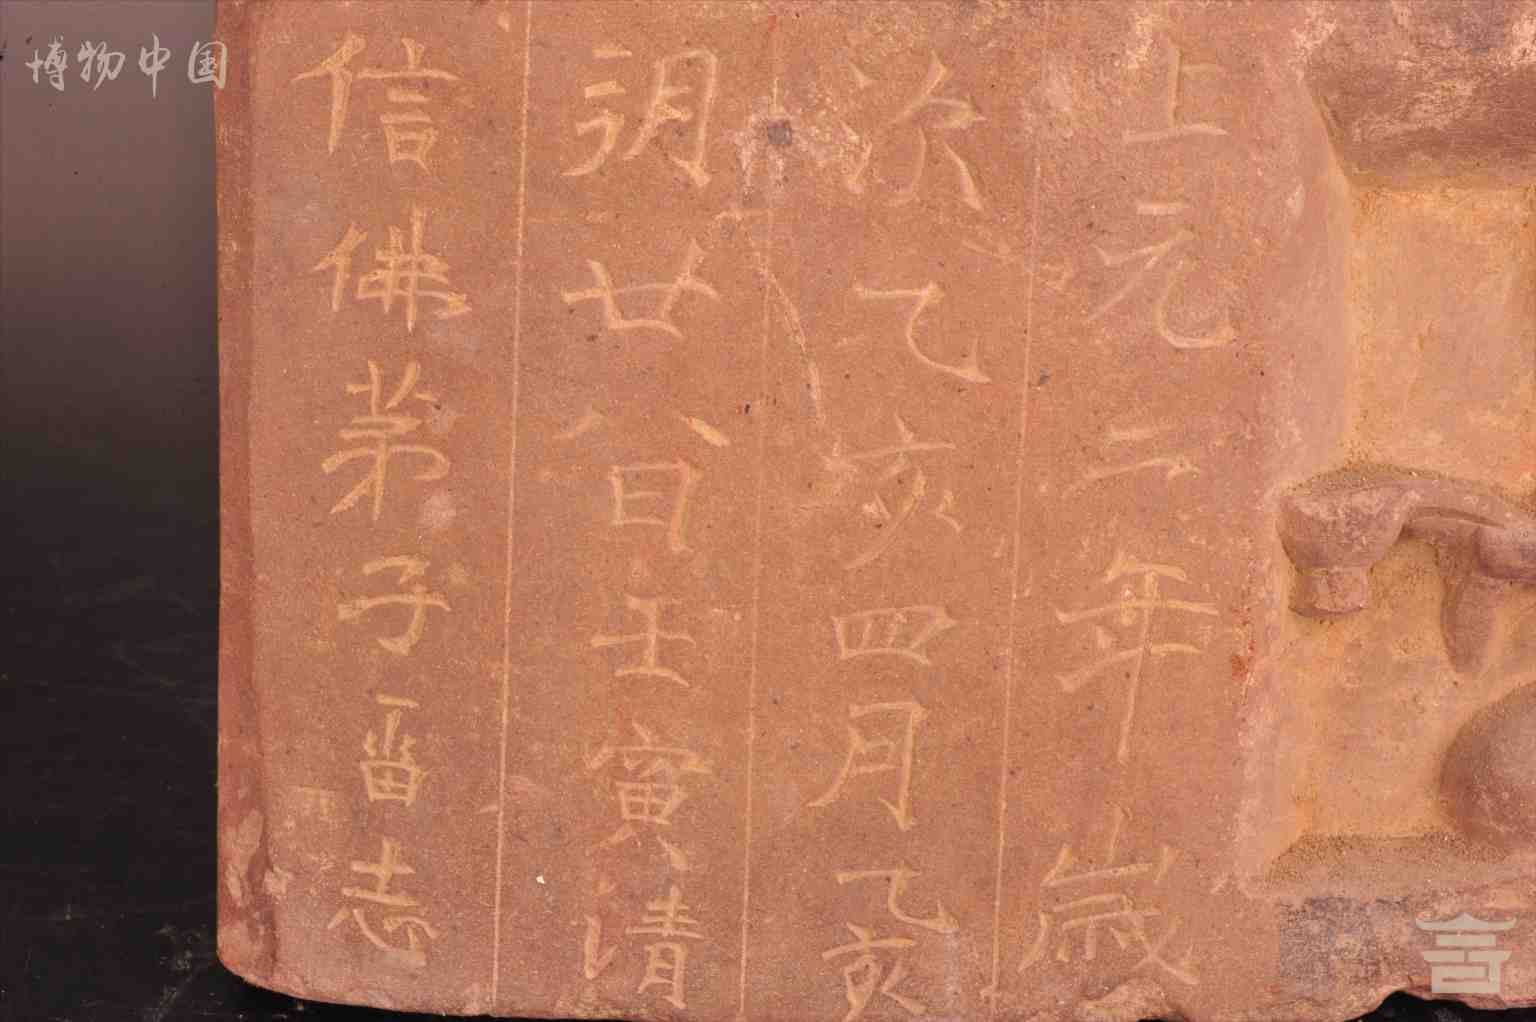 博物中国
上元二年歲
次乙亥四月乙亥
朔廿八日壬寅清
信佛弟子畨志